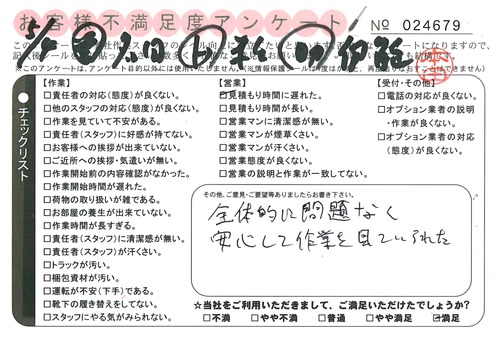 お客様不満足度アンケート
№ 024679
チェックリスト
【作業】
□責任者の対応(態度)が良くない。
□他のスタッフの対応(態度)が良くない。
□作業を見ていて不安がある。
□責任者(スタッフ)に好感が持てない。
□お客様への挨拶が出来ていない。
□ご近所への挨拶・気遣いが無い。
□作業開始前の内容確認がなかった。
□作業開始時間が遅れた。
□荷物の取り扱いが雑である。
□お部屋の養生が出来ていない。
□作業時間が長すぎる。
□責任者(スタッフ)に清潔感が無い。
□責任者(スタッフ)が汗くさい。
□トラックが汚い。
□梱包資材が汚い。
□運転が不安(下手)である。
□靴下の履き替えをしてない。
□スタッフにやる気がみられない。
【営業】
□見積もり時間に遅れた。
□見積もり時間が長い。
□営業マンに清潔感が無い。
□営業マンが煙草くさい。
□営業マンが汗くさい。
□営業態度が良くない。
□営業の説明と作業が一致してない。
【受付・その他】
□電話の対応が良くない。
□オプション業者の説明
・作業が良くない。
□オプション業者の対応
(態度)が良くない。
その他、ご意見・ご要望等ありましたらお書き下さい。
全体的に問題なく
安心して作業を見ていられた
☆当社をご利用いただきまして、ご満足いただけたでしょうか?
□不満 □やや不満 □普通 □やや満足 ☑満足